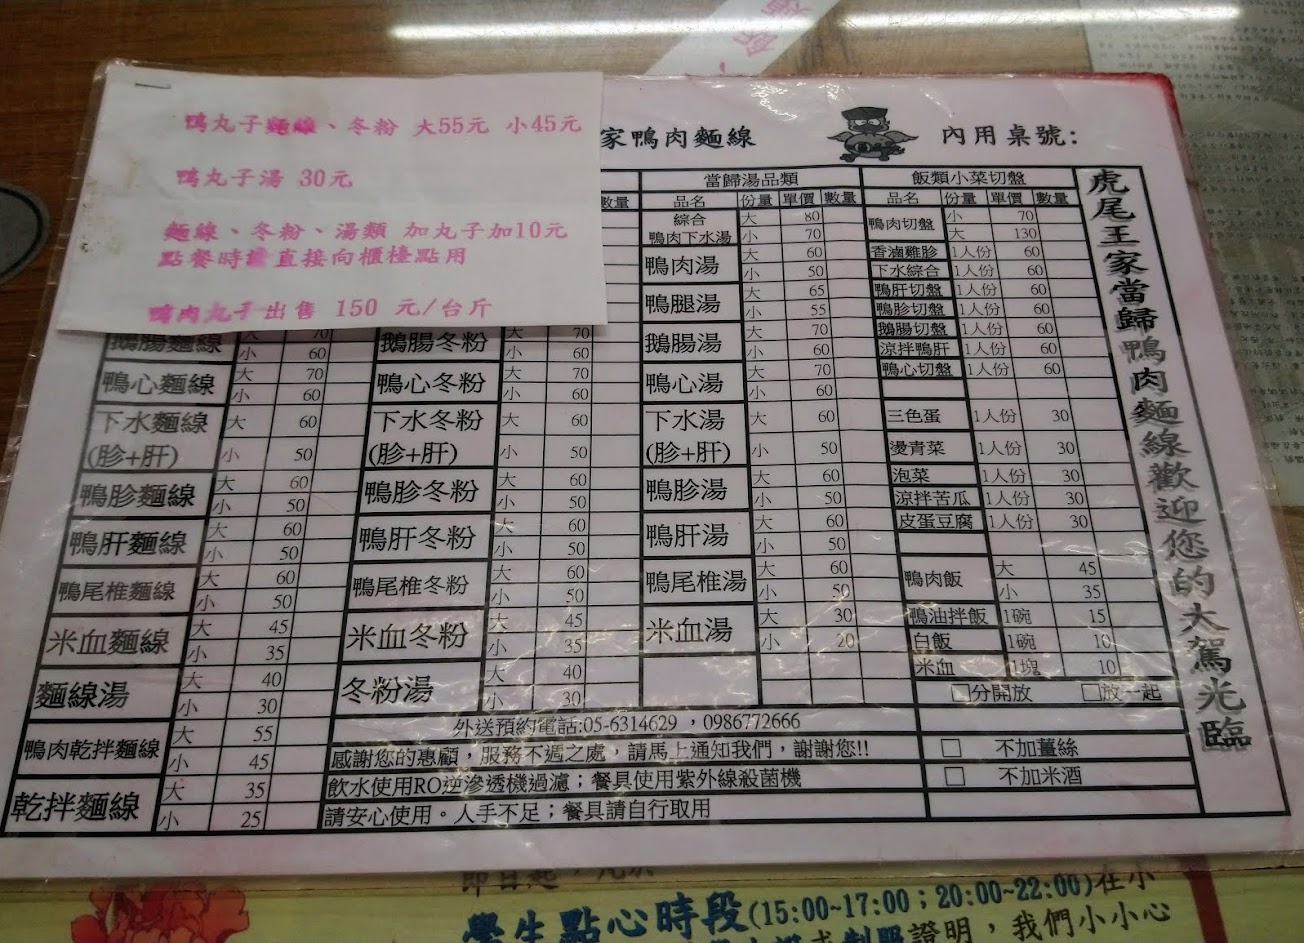 鴨丸子麵線、冬粉 大55元 小45元
鴨丸子湯 30元
麵線、冬粉、湯類 加丸子加10元
點餐時 直接向櫃檯點用
鴨肉丸子出售 150 元/台斤
家鴨肉麵線
內用桌號:
虎尾王家當歸鴨肉麵線歡迎您的大駕光臨
數量
鵝腸麵線 大 70
小 60
鴨心麵線 大 70
小 60
下水麵線 大 60
(胗+肝) 小 50
鴨胗麵線 大 60
小 50
鴨肝麵線 大 60
小 50
鴨尾椎麵線 大 60
小 50
米血麵線 大 45
小 35
麵線湯 大 40
小 30
鴨肉乾拌麵線 大 55
小 45
乾拌麵線 大 35
小 25
鵝腸冬粉 大 70
小 60
鴨心冬粉 大 70
小 60
下水冬粉 大 60
(胗+肝) 小 50
鴨胗冬粉 大 60
小 50
鴨肝冬粉 大 60
小 50
鴨尾椎冬粉 大 60
小 50
米血冬粉 大 45
小 35
冬粉湯 大 40
小 30
當歸湯品類
品名 份量 單價 數量
綜合 大 80
鴨肉下水湯 小 70
鴨肉湯 大 60
小 50
鴨腿湯 大 65
小 55
鵝腸湯 大 70
小 60
鴨心湯 大 70
小 60
下水湯 大 60
(胗+肝) 小 50
鴨胗湯 大 60
小 50
鴨肝湯 大 60
小 50
鴨尾椎湯 大 60
小 50
米血湯 大 30
小 20
飯類小菜切盤
品名 份量 單價 數量
鴨肉切盤 小 70
大 130
香滷雞胗 1人份 60
下水綜合 1人份 60
鴨肝切盤 1人份 60
鴨胗切盤 1人份 60
鵝腸切盤 1人份 60
涼拌鴨肝 1人份 60
鴨心切盤 1人份 60
三色蛋 1人份 30
燙青菜 1人份 30
泡菜 1人份 30
涼拌苦瓜 1人份 30
皮蛋豆腐 1人份 30
鴨肉飯 大 45
小 35
鴨油拌飯 1碗 15
白飯 1碗 10
米血 1塊 10
□分開放 □放一起
□ 不加薑絲
□ 不加米酒
外送預約電話:05-6314629 ，0986772666
感謝您的惠顧，服務不週之處，請馬上通知我們，謝謝您!!
飲水使用RO逆滲透機過濾；餐具使用紫外線殺菌機
請安心使用。人手不足；餐具請自行取用
學生點心時段(15:00~17:00；20:00~22:00)在小
證明，我們小小心